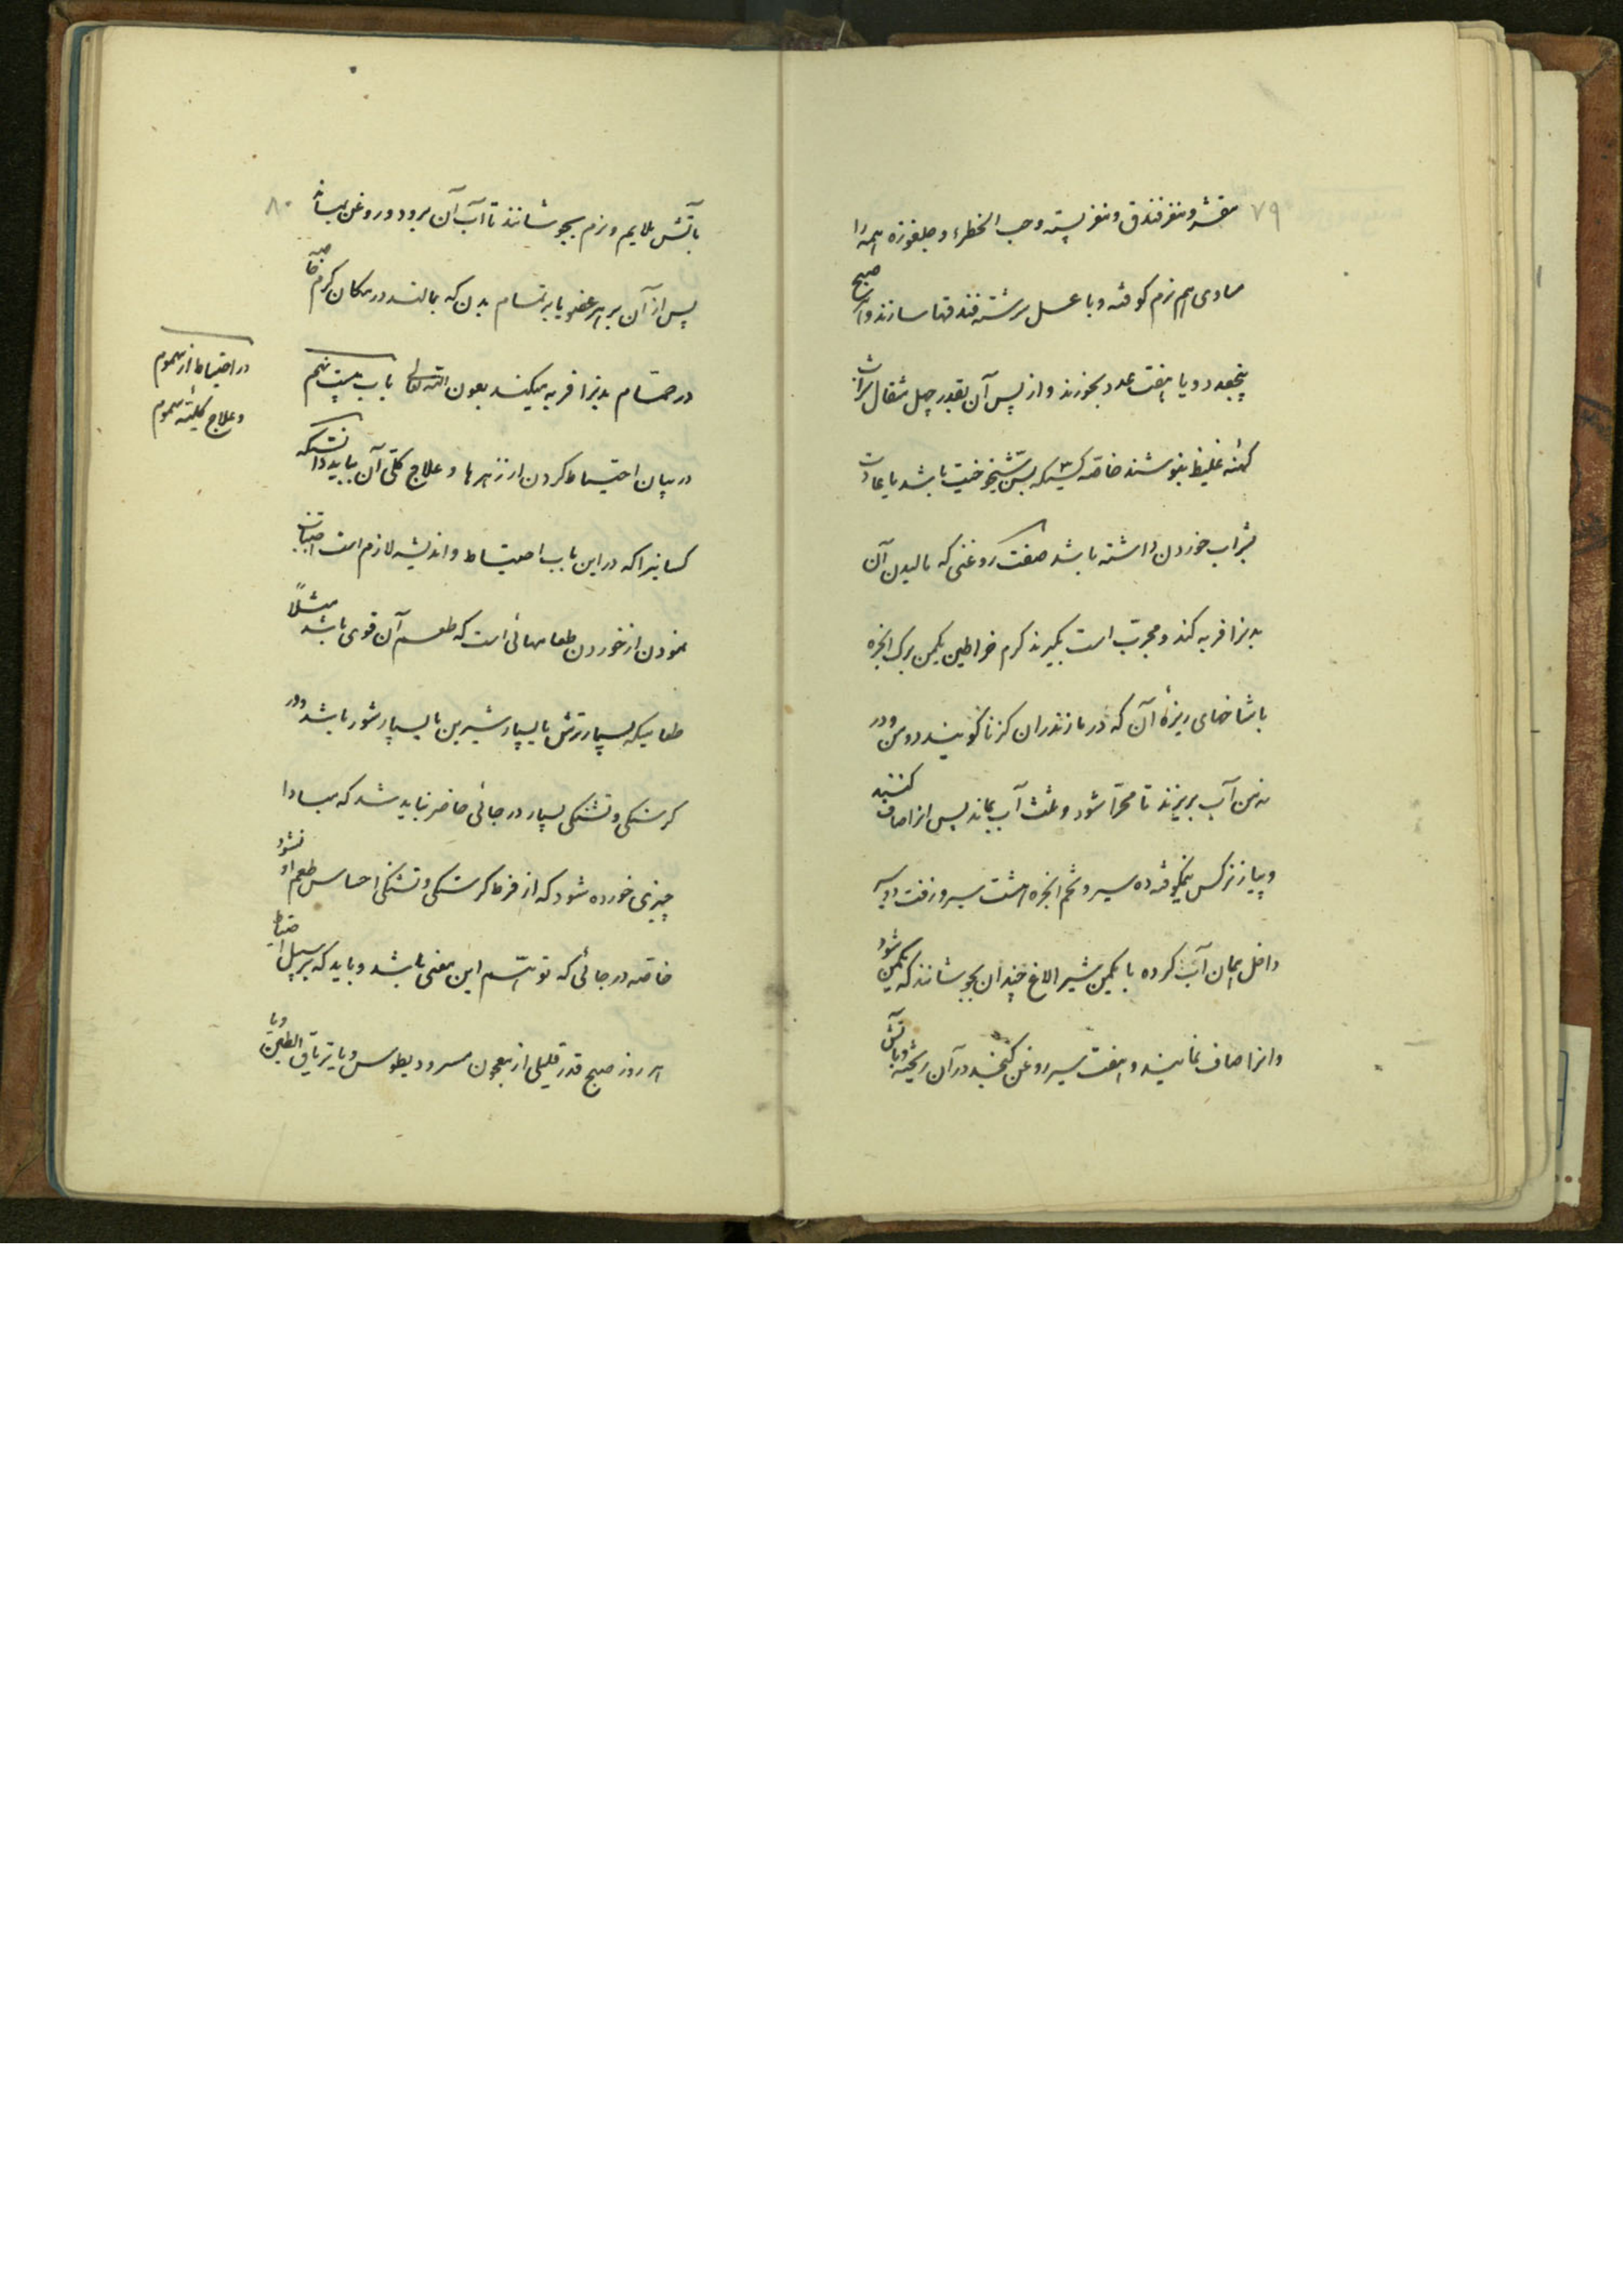 ۷۹
مقشر و مغز فندق و مغز پسته و حب الخضراء و چلغوزه همه را
مساوی هم نرم کوفته و با عسل سرشته فندقها سازند و هر صبح
پنجعدد و یا هفت عدد بخورند و از پس آن بقدر چهل مثقال شراب
کهنه غلیظ بنوشند خاصه کسیکه بسن شیخوخیت باشد یا عادت
بشراب خوردن داشته باشد صفت روغنی که مالیدن آن
بدنرا فربه کند و مجرب است بگیرند کرم خراطین یکمن برک انجره
با شاخهای ریزهٔ آن که در مازندران کزنا گویند دو من و در
نه من آب بریزند تا مهرا شود و ثلث آب بماند پس انرا صاف کنند
و پیاز نرکس نیمکوفته ده سیر و تخم انجره هشت سیر و زفت
داخل همان آب کرده با یکمن شیر الاغ چندان بجوشانند که یکمن شود
و انرا صاف نمایند و هفت سیر روغن کنجد در آن ریخته و باتش
۸۰
باتش ملایم و نرم بجوشانند تا آب آن برود و روغن بماند
پس از آن بر هر عضو یا بر تمام بدن که بمالند در مکان کرم خاصه
در حمام بدنرا فربه میکند بعون الله تعالی باب بیست پنجم
در بیان احتیاط کردن از زهرها و علاج کلی آن بباید دانستکه
کسانیرا که در این باب احتیاط و اندیشه لازم است اجتناب
نمودن از خوردن طعامهائی است که طعم آن قوی باشد مثلاً
طعامیکه بسیار ترش یا بسیار شیرین یا بسیار شور باشد و در
کرسنکی و تشنکی بسیار در جائی حاضر نباید شد که مبادا
چیزی خورده شود که از فرط کرسنکی و تشنکی احساس طعم او نشود
خاصه در جائی که توهم این معنی باشد و باید که بر سبیل احتیاط
هر روز صبح قدر قلیلی از معجون مسرودیطوس و یا تریاق الطین و یا
در احتیاط از سموم
و علاج کلیهٔ سموم